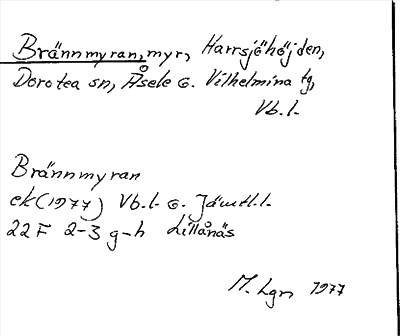 Brännmyran, myr, Harrsjöhöjden,
Dorotea sn, Åsele o. Vilhelmina tg,
Vb.l.
Brännmyran
ek (1977) Vb.l. o. Jämtl.l.
22F 2-3 g-h Lillånäs
M. Lgn 1977